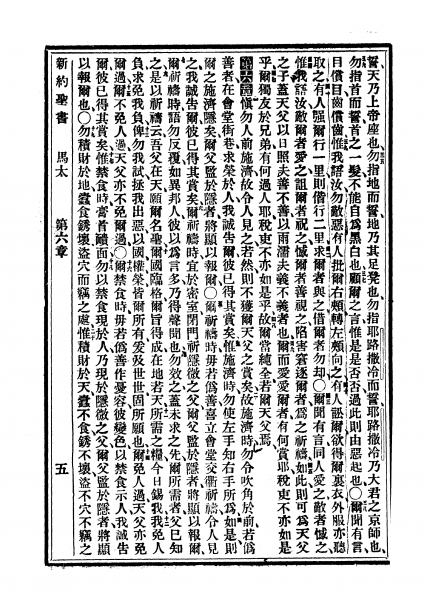 誓天乃上帝座也勿指地而誓地乃其足凳也勿指耶路撒冷而誓耶路撒冷乃大君之京師也
勿指首而誓首之一髮不能自爲黑白也顧爾之言惟是是否否過此則由惡起也〇爾聞有言
目償目齒償齒惟我語汝勿敵惡有人批爾右頰轉左頰向之有人訟爾欲得爾裏衣外服亦聽
取之有人强爾行一里則偕行二里求爾者與之借爾者勿却〇爾聞有言同人愛之敵者憾之
惟我語汝敵爾者愛之詛爾者祝之憾爾者善視之陷害窘逐爾者爲之祈禱如此則可爲天父
之子蓋天父以日照夫善不善以雨濡夫義不義者也爾而愛愛爾者有何賞耶稅吏不亦如是
乎爾獨友於兄弟有何過人耶稅吏不亦如是乎故爾當純全若爾天父焉
第六章愼勿人前施濟故令人見之若然則不獲爾天父之賞矣故施濟時勿令吹角於前若僞
善者在會堂街巷求榮於人我誠告爾彼已得其賞矣惟施濟時勿使左手知右手所爲如是則
爾之施濟隱矣爾父監於隱者將顯以報爾〇爾祈禱時毋若僞善喜立會堂交衢祈禱令人見
之我誠告爾彼已得其賞矣爾祈禱時宜於密室閉門祈爾隱微之父爾父監於隱者將顯以報爾
爾祈禱時語勿反覆如異邦人彼以爲言多乃得聲聞也勿效之蓋未求之先爾所需者父已知
之是以祈禱云吾父在天願爾名聖爾國臨格爾旨得成在地若天所需之糧今日錫我我免人
負求免我負俾勿我試拯我出惡以國權榮皆爾所有爰及世世固所願也爾免人過天父亦免
爾過爾不免人過天父亦不免爾過〇爾禁食時毋若僞善作憂容彼變色以禁食示人我誠告
爾彼已得其賞矣惟禁食時膏首靧面勿以禁食現於人乃現於隱微之父爾父監於隱者將顯
以報爾也〇勿積財於地蠹食銹壞盜穴而竊之處惟積財於天蠹不食銹不壞盜不穴不竊之
新約聖書 馬太 第六章 五